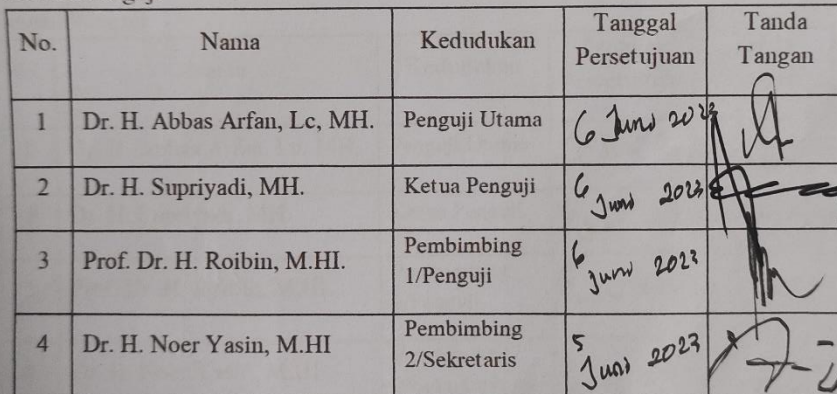 No. Nama Kedudukan Tanggal Persetujuan Tanda Tangan
1 Dr. H. Abbas Arfan, Lc, MH. Penguji Utama 6 Juni 2023
2 Dr. H. Supriyadi, MH. Ketua Penguji 6 Juni 2023
3 Prof. Dr. H. Roibin, M.HI. Pembimbing 1/Penguji 6 Juni 2023
4 Dr. H. Noer Yasin, M.HI Pembimbing 2/Sekretaris 5 Juni 2023